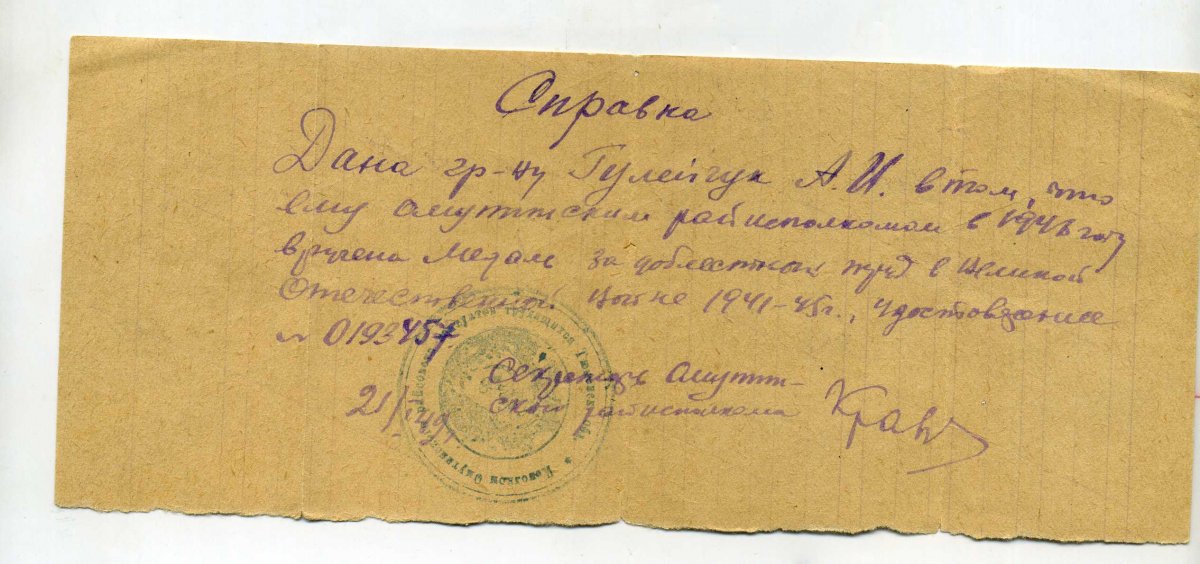 Справка
Дана гр-ну Гулейчук А.И. в том, что
ему Омутинским райисполкомом в 1946 году
вручена медаль за доблестный труд в Великой
Отечественной войне 1941-45г., удостоверение
№ 0193457
Секретарь Омутин-
ской райисполкома
21/ 49г.
депутатов трудящихся Тюменской